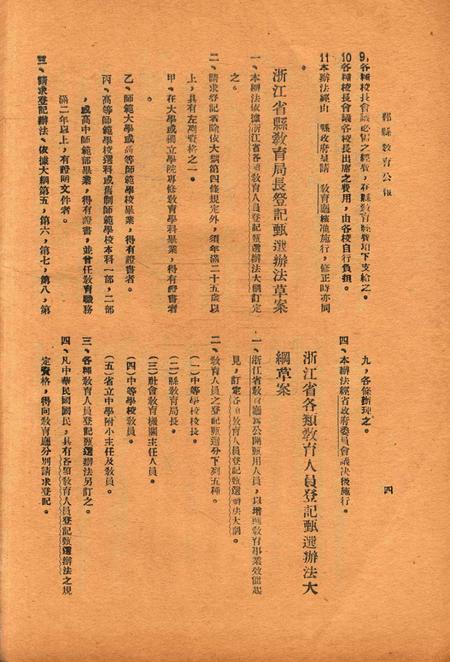 鄞縣教育公報
四
9，各種校長會議必需之經費，在縣教育經費項下支給之。
10各種校長會議各校長出席之費用，由各校自行負擔。
11本辦法經由　縣政府呈請　教育廳核准施行，修正時亦同
浙江省縣教育局長登記甄選辦法草案
一、本辦法依據浙江省各類教育人員登記甄選辦法大綱訂定
之。
二、請求登記者除依大綱第四條規定外，須年滿二十五歲以
上，具有左列資格之一：
甲、在大學或獨立學院專修教育學科畢業，得有證書者
。
乙、師範大學或高等師範學校畢業，得有證書者。
丙、高等師範學校選科或舊制師範學校本科一部，二部
，或高中師範部畢業，得有證書，並曾任教育職務
滿二年以上，有證明文件者。
三、請求登記辦法，依據大綱第五，第六，第七，第八，第
九，各條辦理之。
四、本辦法經省政府委員會議決後施行。
浙江省各類教育人員登記甄選辦法大
綱草案
一、浙江省教育廳為公開甄用人員，以增進教育事業效能起
見，訂定各類教育人員登記甄選辦法大綱。
二、教育人員之登記甄選分下列五種。
（一）中等學校校長。
（二）縣教育局長。
（三）社會教育機關主任人員。
（四）中等學校教員。
（五）省立中學附小主任及教員。
三、各種教育人員登記甄選辦法另訂之。
四、凡中華民國國民，具有各類教育人員登記甄選辦法之規
定資格，得向教育廳分別請求登記。